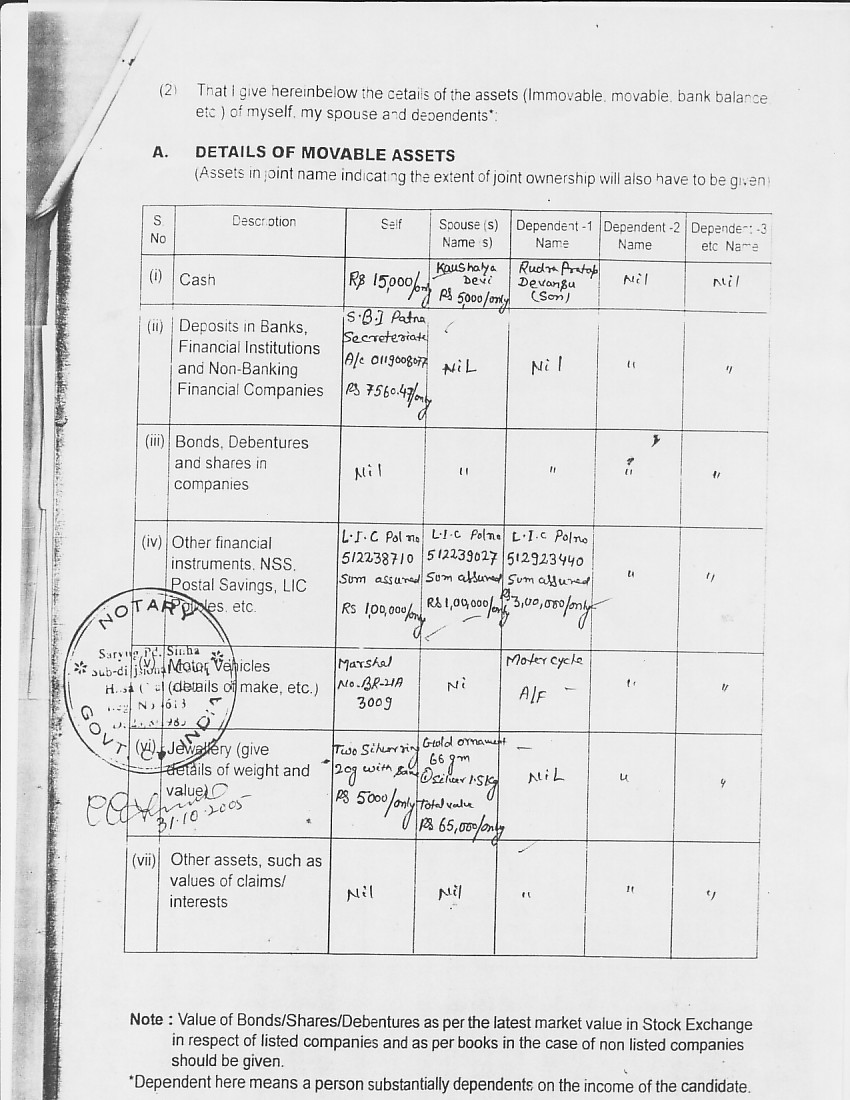 (2) That I give hereinbelow the details of the assets (Immovable, movable, bank balance
etc.) of myself, my spouse and dependents*:
A. DETAILS OF MOVABLE ASSETS
(Assets in joint name indicating the extent of joint ownership will also have to be given)
S. No Description Self Spouse (s) Name(s) Dependent -1 Name Dependent -2 Name Dependent -3 etc. Name
(i) Cash Rs 15,000/only Kaushalya Devi Rs 5000/only Rudra Pratap Devangu (Son) Nil Nil
(ii) Deposits in Banks,
Financial Institutions
and Non-Banking
Financial Companies
S.B.I Patna
Secreteriate
A/c 0119008077
Rs 7560.47/only
NiL Nil " "
(iii) Bonds, Debentures
and shares in
companies
Nil " " " "
(iv) Other financial
instruments. NSS.
Postal Savings, LIC
Policies, etc.
L.I.C Pol no
512238710
Sum assured
Rs 1,00,000/only
L.I.C Pol no
512239027
Sum assured
Rs 1,00,000/only
L.I.C Pol no
512923440
Sum assured
Rs 3,00,000/only
" "
(v) Motor Vehicles
(details of make, etc.)
Marshal
No. BR-21A
3009
Ni
Motercycle
A/F
" "
(vi) Jewellery (give
details of weight and
value)
Two Silver ring
20g with
Rs 5000/only
Gold ornament
66 gm
Silver 1.5Kg
Total value
Rs 65,000/only
NiL " "
(vii) Other assets, such as
values of claims/
interests
Nil Nil " " "
NOTARY
Sinha
Sub-di
GOVT. INDIA
31.10.2005
Note : Value of Bonds/Shares/Debentures as per the latest market value in Stock Exchange
in respect of listed companies and as per books in the case of non listed companies
should be given.
*Dependent here means a person substantially dependents on the income of the candidate.